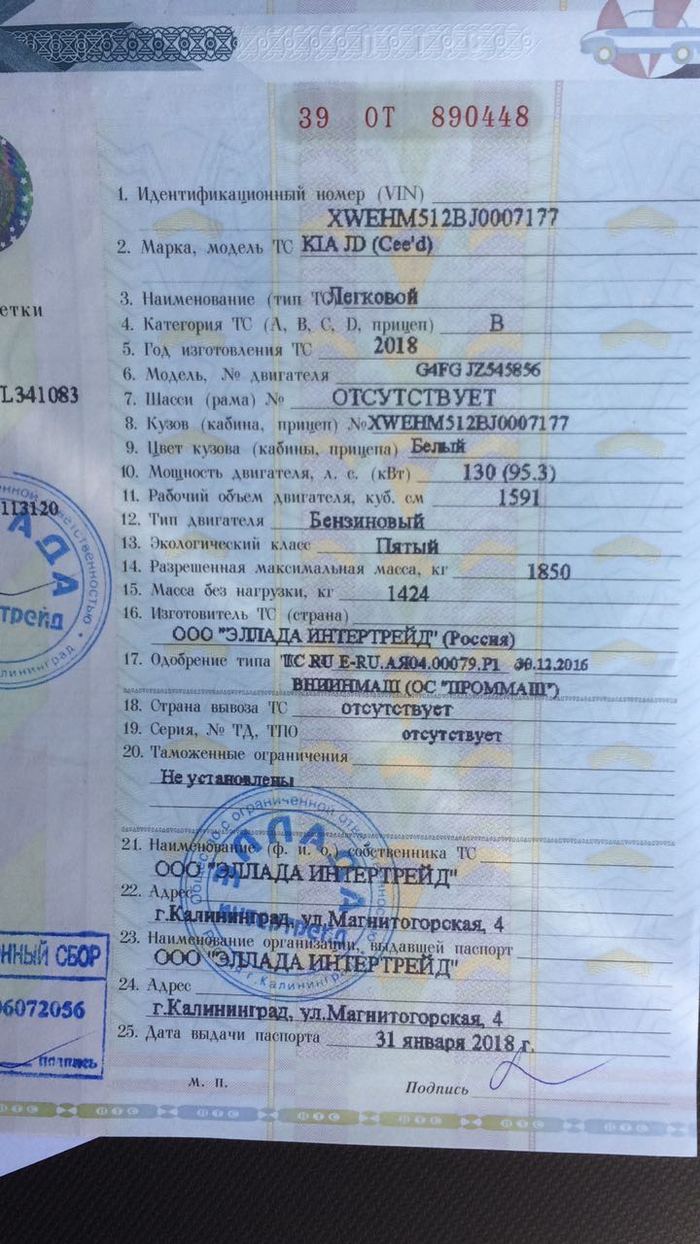 39 ОТ 890448
1. Идентификационный номер (VIN)
XWEHM512BJ0007177
2. Марка, модель ТС KIA JD (Cee'd)
3. Наименование (тип ТС) Легковой
етки
4. Категория ТС (A, B, C, D, прицеп) B
5. Год изготовления ТС 2018
6. Модель, № двигателя G4FG JZ545856
L341083
7. Шасси (рама) № ОТСУТСТВУЕТ
8. Кузов (кабина, прицеп) № XWEHM512BJ0007177
9. Цвет кузова (кабины, прицепа) Белый
10. Мощность двигателя, л. с. (кВт) 130 (95.3)
11. Рабочий объем двигателя, куб. см 1591
113120
12. Тип двигателя Бензиновый
13. Экологический класс Пятый
14. Разрешенная максимальная масса, кг 1850
15. Масса без нагрузки, кг 1424
16. Изготовитель ТС (страна)
ООО "ЭЛЛАДА ИНТЕРТРЕЙД" (Россия)
17. Одобрение типа ТС RU E-RU.АЯ04.00079.P1 30.12.2016
ВНИИНМАШ (ОС "ПРОММАШ")
18. Страна вывоза ТС отсутствует
19. Серия, № ТД, ТПО отсутствует
20. Таможенные ограничения
Не установлены
21. Наименование (ф. и. о.) собственника ТС
ООО "ЭЛЛАДА ИНТЕРТРЕЙД"
22. Адрес
г.Калининград, ул.Магнитогорская, 4
23. Наименование организации, выдавшей паспорт
ООО "ЭЛЛАДА ИНТЕРТРЕЙД"
24. Адрес
г.Калининград, ул.Магнитогорская, 4
25. Дата выдачи паспорта 31 января 2018 г.
ННЫЙ СБОР
06072056
подпись
М. П. Подпись